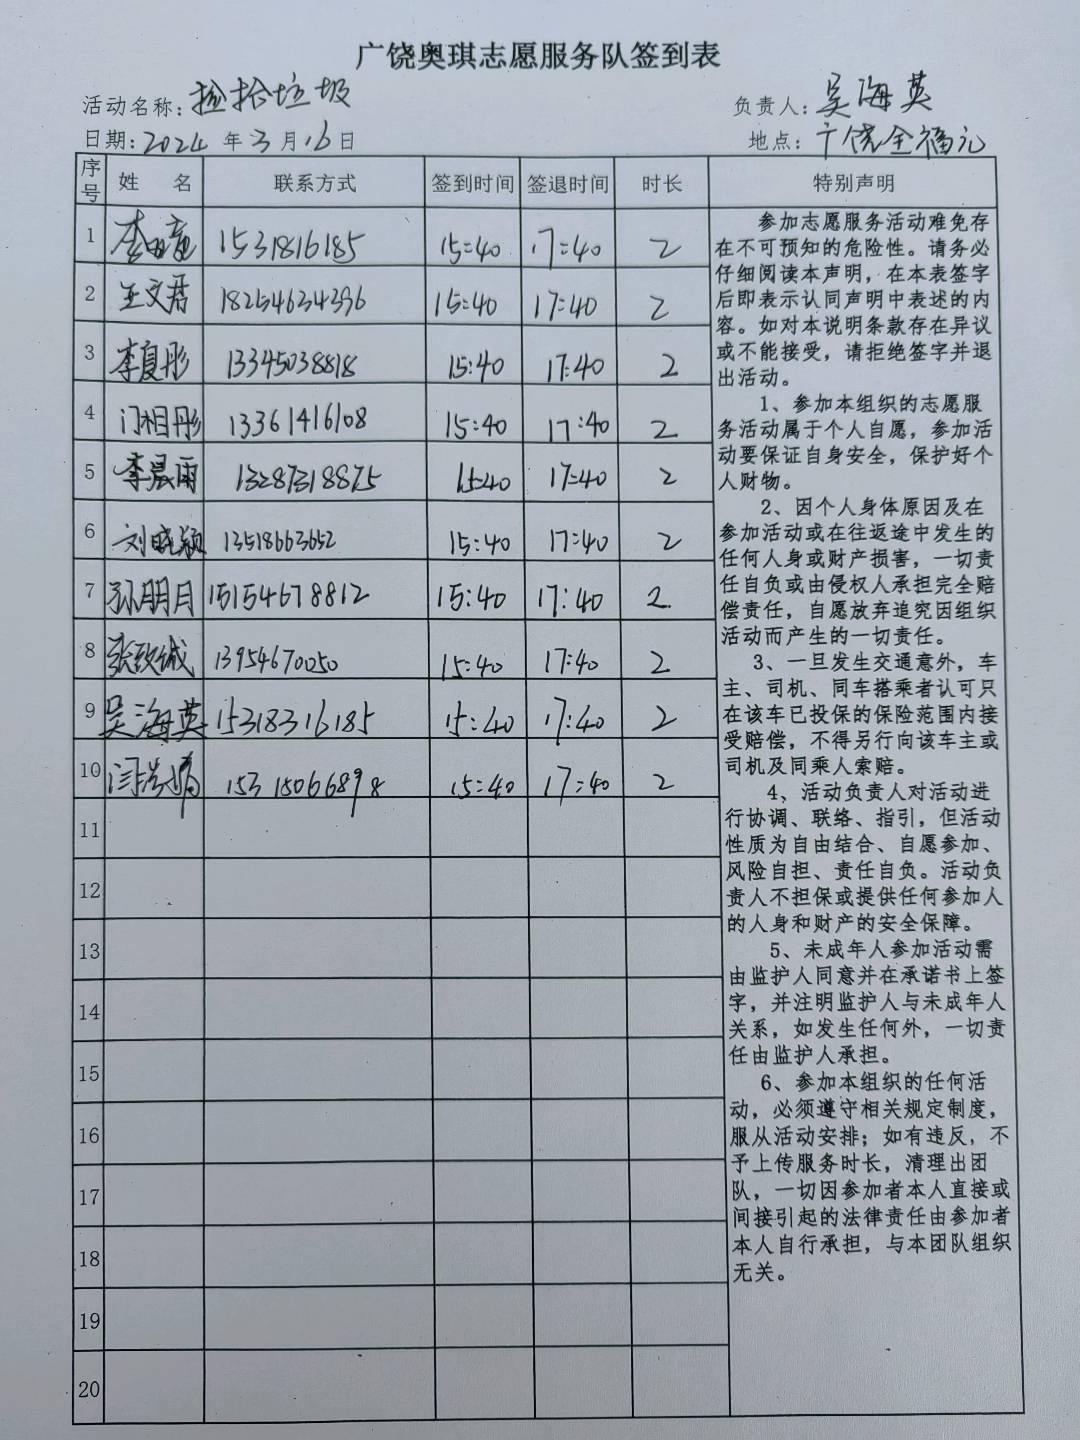 广饶奥琪志愿服务队签到表
活动名称：捡拾垃圾 负责人：吴海英
日期：2024年3月16日 地点：广饶全福元
序号 姓 名 联系方式 签到时间 签退时间 时长 特别声明
1 李 1531816185 15:40 17:40 2
2 王文君 18254634396 15:40 17:40 2
3 李夏彤 13345038818 15:40 17:40 2
4 门相彤 13361416108 15:40 17:40 2
5 李晨雨 13287318875 15:40 17:40 2
6 刘晓颖 13518663652 15:40 17:40 2
7 孙朋月 15154678812 15:40 17:40 2
8 张致诚 13954670050 15:40 17:40 2
9 吴海英 15318316185 15:40 17:40 2
10 闫 15315066898 15:40 17:40 2
11
12
13
14
15
16
17
18
19
20
参加志愿服务活动难免存
在不可预知的危险性。请务必
仔细阅读本声明，在本表签字
后即表示认同声明中表述的内
容。如对本说明条款存在异议
或不能接受，请拒绝签字并退
出活动。
1、参加本组织的志愿服
务活动属于个人自愿，参加活
动要保证自身安全，保护好个
人财物。
2、因个人身体原因及在
参加活动或在往返途中发生的
任何人身或财产损害，一切责
任自负或由侵权人承担完全赔
偿责任，自愿放弃追究因组织
活动而产生的一切责任。
3、一旦发生交通意外，车
主、司机、同车搭乘者认可只
在该车已投保的保险范围内接
受赔偿，不得另行向该车主或
司机及同乘人索赔。
4、活动负责人对活动进
行协调、联络、指引，但活动
性质为自由结合、自愿参加、
风险自担、责任自负。活动负
责人不担保或提供任何参加人
的人身和财产的安全保障。
5、未成年人参加活动需
由监护人同意并在承诺书上签
字，并注明监护人与未成年人
关系，如发生任何外，一切责
任由监护人承担。
6、参加本组织的任何活
动，必须遵守相关规定制度，
服从活动安排；如有违反，不
予上传服务时长，清理出团
队，一切因参加者本人直接或
间接引起的法律责任由参加者
本人自行承担，与本团队组织
无关。